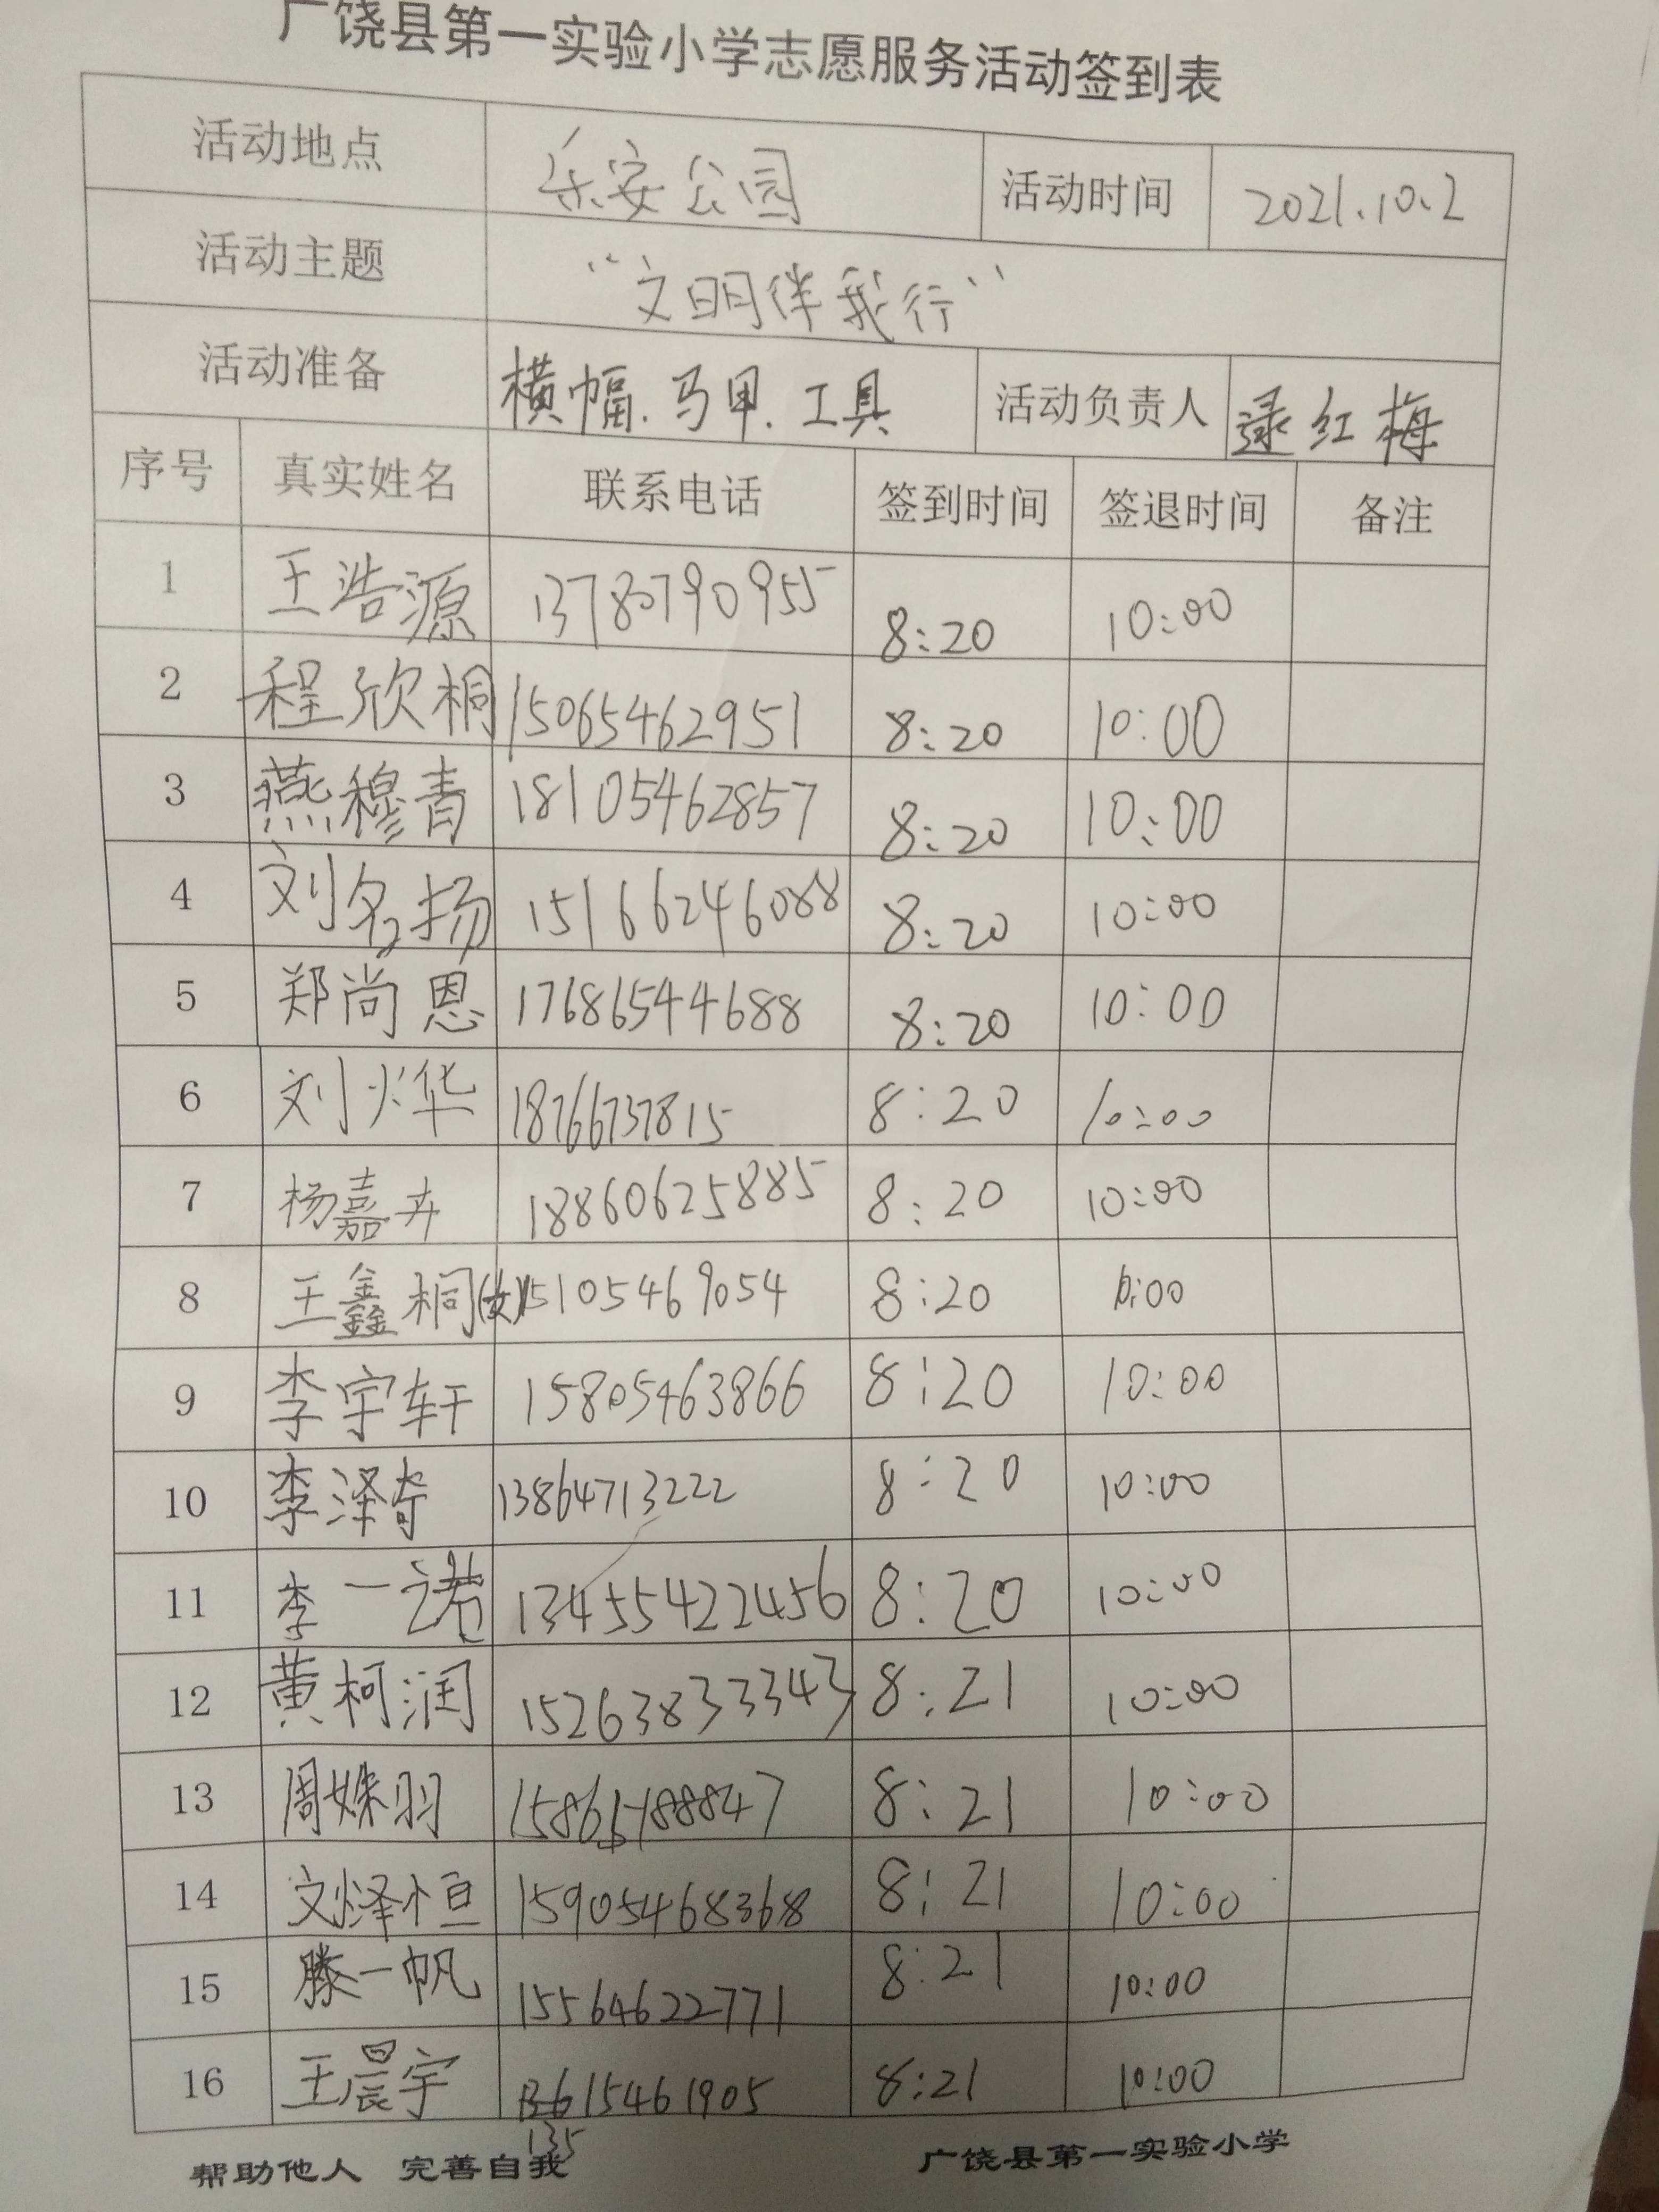 广饶县第一实验小学志愿服务活动签到表
活动地点 乐安公园 活动时间 2021.10.2
活动主题 “文明伴我行”
活动准备 横幅.马甲.工具 活动负责人 逯红梅
序号 真实姓名 联系电话 签到时间 签退时间 备注
1 王浩源 13780790955 8:20 10:00
2 程欣桐 15065462951 8:20 10:00
3 燕穆青 18105462857 8:20 10:00
4 刘名扬 15166246088 8:20 10:00
5 郑尚恩 17686544688 8:20 10:00
6 刘烨 18766737815 8:20 10:00
7 杨嘉卉 18860625885 8:20 10:00
8 王鑫桐(女) 15105469054 8:20 10:00
9 李宇轩 15805463866 8:20 10:00
10 李泽奇 13864713222 8:20 10:00
11 李一诺 13455422456 8:20 10:00
12 黄柯润 15263833343 8:21 10:00
13 周姝羽 8:21 10:00
14 文烽恒 15905468368 8:21 10:00
15 滕一帆 15564622771 8:21 10:00
16 王晨宇 13615461905 8:21 10:00
135
帮助他人 完善自我 广饶县第一实验小学